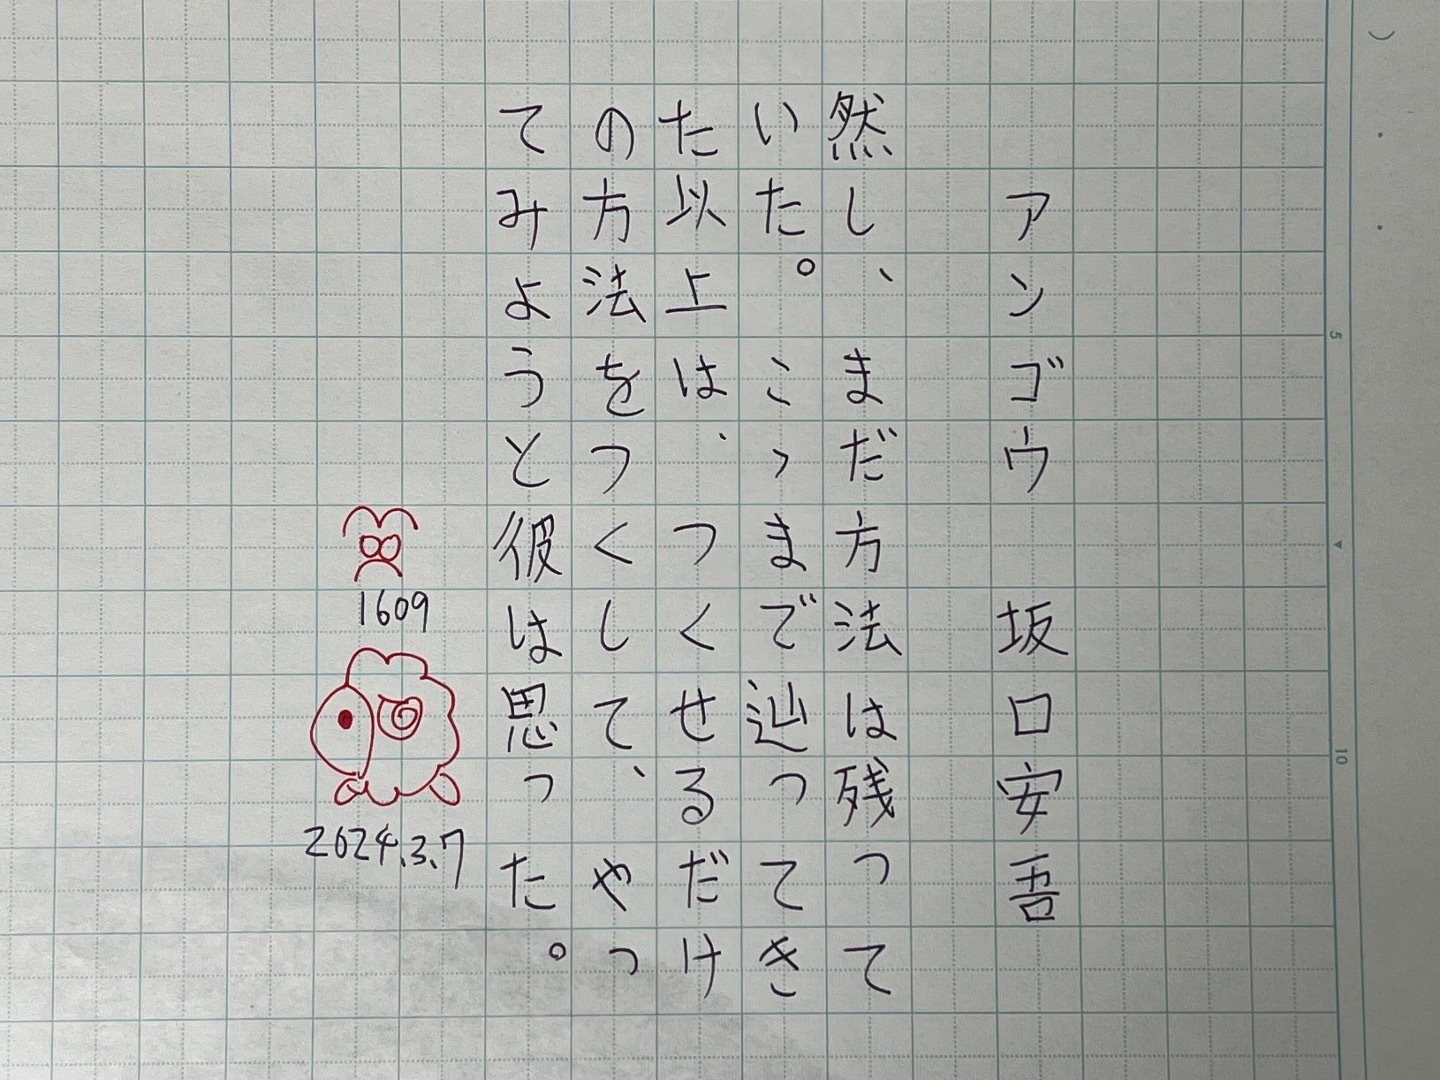 アンゴウ　坂口安吾
然し、まだ方法は残って
いた。こゝまで辿ってき
た以上は、つくせるだけ
の方法をつくして、やっ
てみようと彼は思った。
1609
2024.3.7
5
10